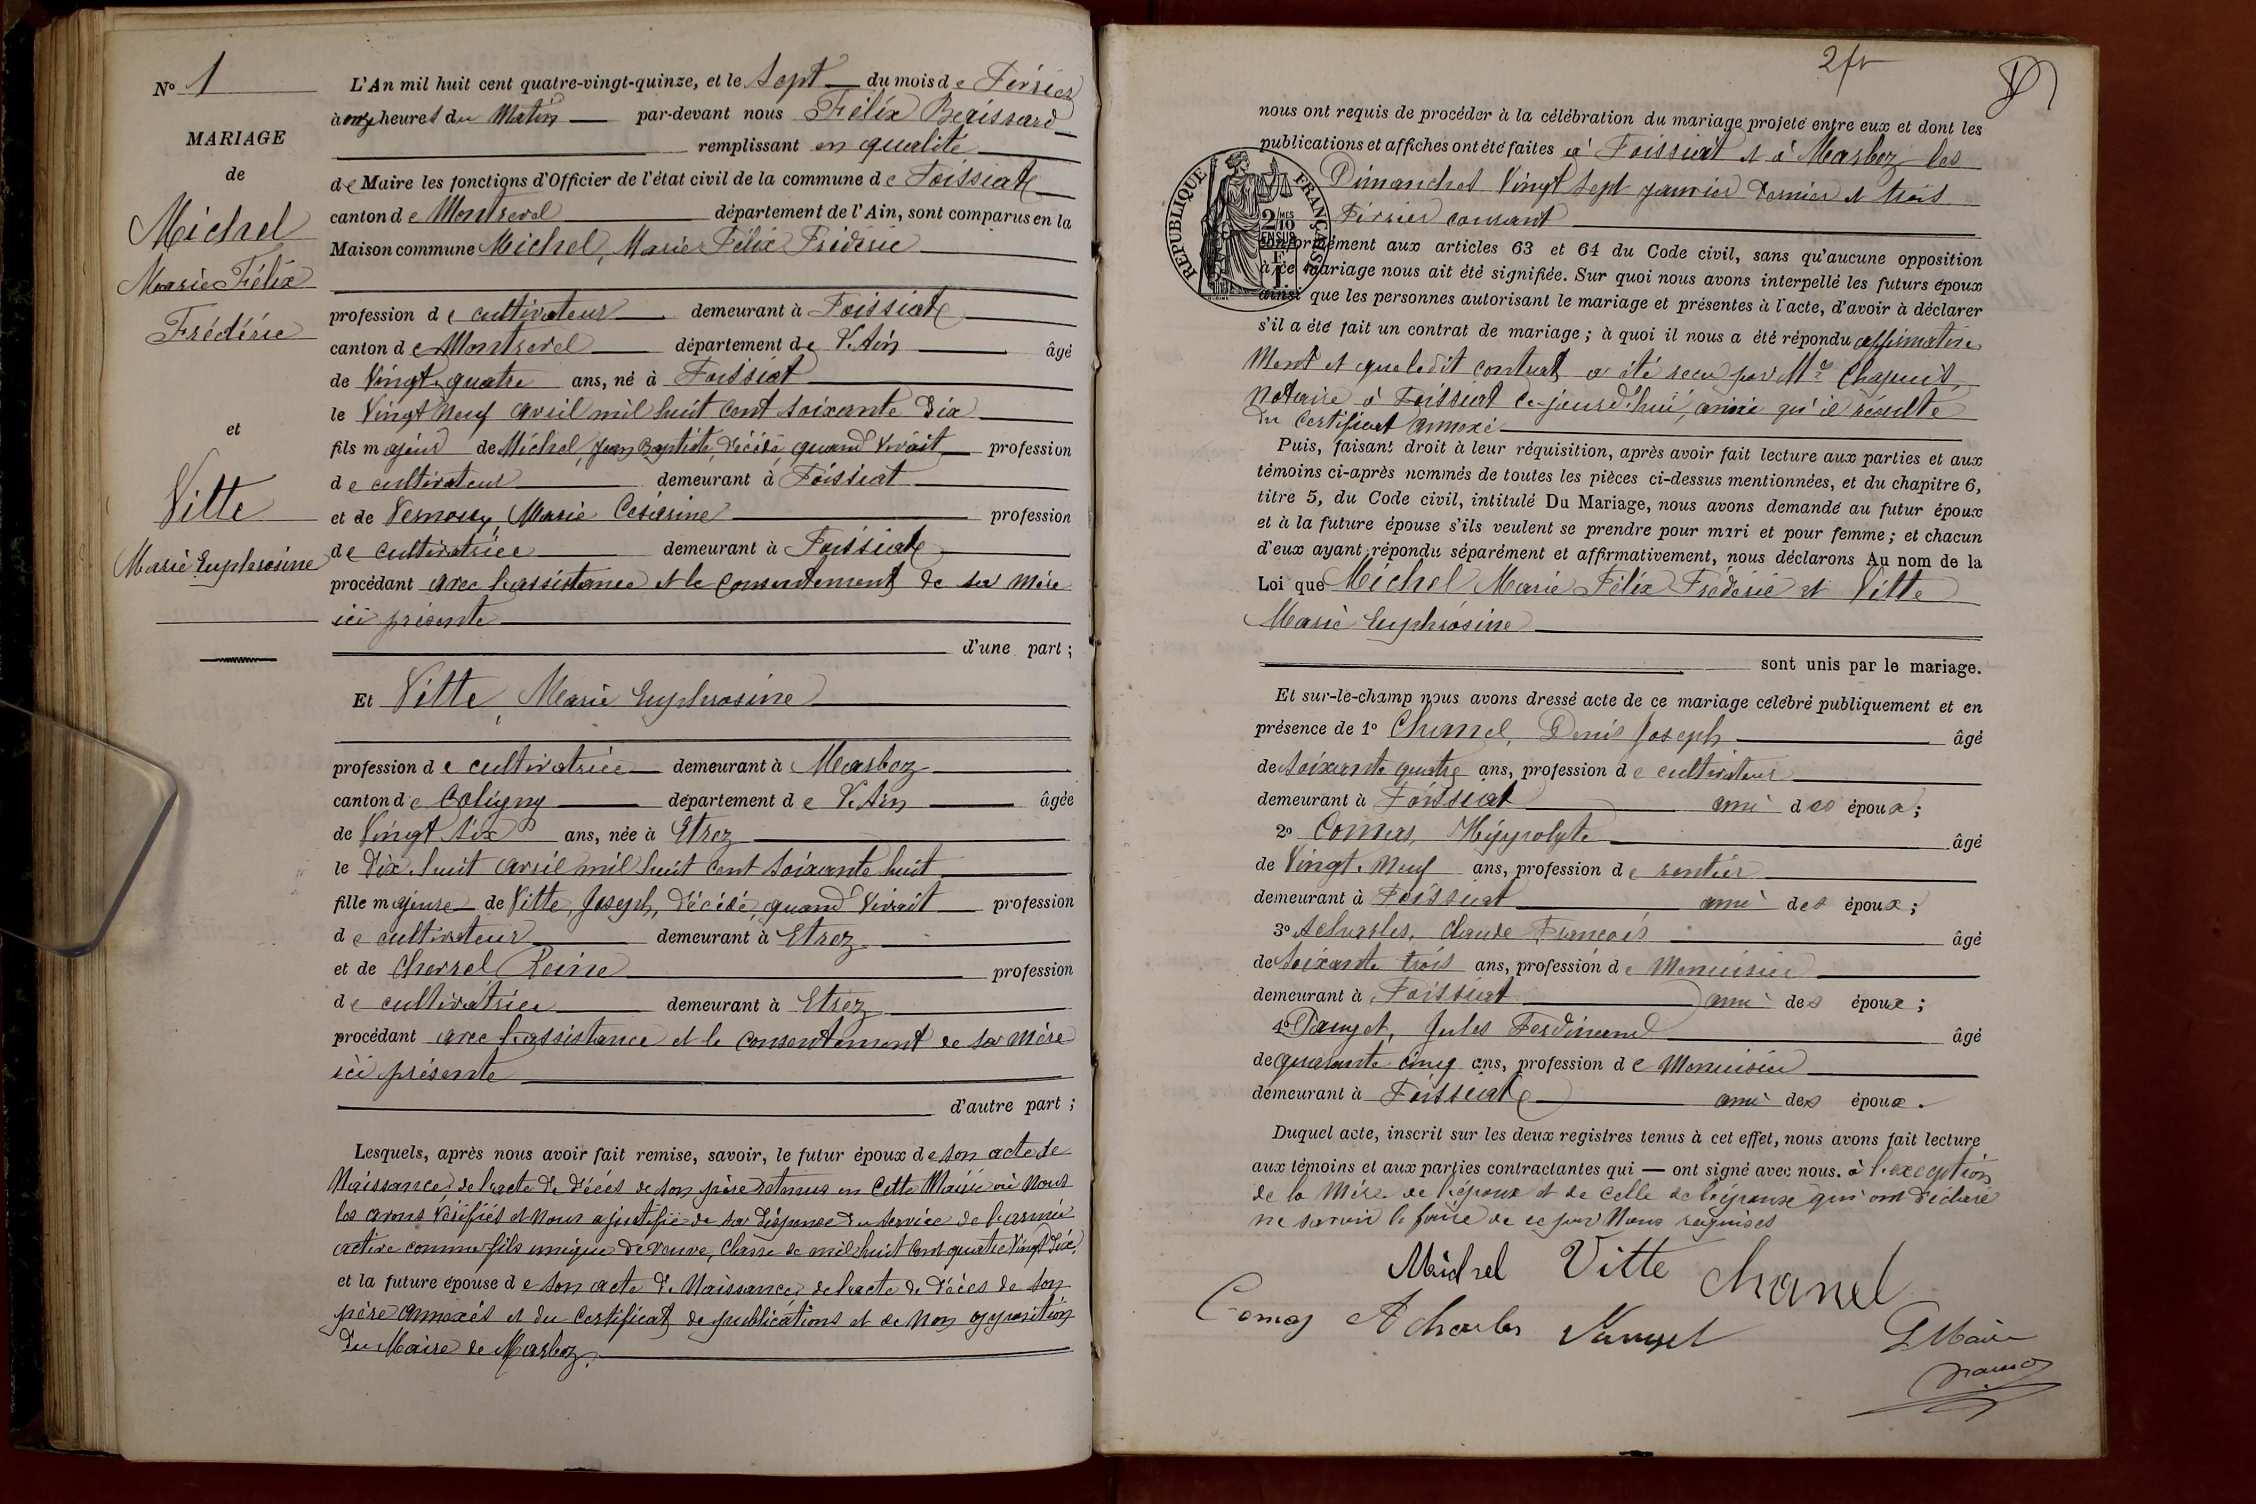 N° 1
MARIAGE
de
Michel
Marie Félix
Frédéric
et
Vitte
Marie Euphrosine
L'An mil huit cent quatre-vingt-quinze, et le Sept du mois de Février
à onze heures du Matin par-devant nous Félix
remplissant en qualité
de Maire les fonctions d'Officier de l'état civil de la commune de Foissiat
canton de Montrevel département de l'Ain, sont comparus en la
Maison commune Michel, Marie Félix Frédéric
profession de cultivateur demeurant à Foissiat
canton de Montrevel département de l'Ain âgé
de Vingt-quatre ans, né à Foissiat
le Vingt Neuf avril mil huit cent soixante dix
fils majeur de Michel, Jean Baptiste, décédé, quand vivait profession
de cultivateur demeurant à Foissiat
et de Vernoux, Marie Césarine profession
de cultivatrice demeurant à Foissiat
procédant avec l'assistance et le consentement de sa mère
ici présente
d'une part ;
Et Vitte, Marie Euphrosine
profession de cultivatrice demeurant à Marboz
canton de Coligny département de l'Ain âgée
de Vingt Six ans, née à Etrez
le Dix-huit avril mil huit cent soixante huit
fille majeure de Vitte, Joseph, décédé, quand vivait profession
de cultivateur demeurant à Etrez
et de Chevrel Reine profession
de cultivatrice demeurant à Etrez
procédant avec l'assistance et le consentement de sa mère
ici présente
d'autre part ;
Lesquels, après nous avoir fait remise, savoir, le futur époux de son acte de
Naissance, de l'acte de décès de son père retenus en cette Mairie où Nous
les avons vérifiés et Nous a justifié de sa dispense du service de l'armée
active comme fils unique de veuve, classe de mil huit cent quatre vingt dix,
et la future épouse de son acte de Naissance, de l'acte de décès de son
père annexés et du certificat de publications et de Non opposition
du Maire de Marboz.
2 fr
nous ont requis de procéder à la célébration du mariage projeté entre eux et dont les
publications et affiches ont été faites à Foissiat et à Marboz les
Dimanches Vingt Sept janvier dernier et trois
Février courant
RÉPUBLIQUE FRANÇAISE
2/10 MES
EN SUS
1 F
conformément aux articles 63 et 64 du Code civil, sans qu'aucune opposition
à ce mariage nous ait été signifiée. Sur quoi nous avons interpellé les futurs époux
ainsi que les personnes autorisant le mariage et présentes à l'acte, d'avoir à déclarer
s'il a été fait un contrat de mariage ; à quoi il nous a été répondu affirmative
Ment et que ledit contrat a été reçu par Me Chapuis,
Notaire à Foissiat ce jourd'hui, ainsi qu'il résulte
du certificat annexé
Puis, faisant droit à leur réquisition, après avoir fait lecture aux parties et aux
témoins ci-après nommés de toutes les pièces ci-dessus mentionnées, et du chapitre 6,
titre 5, du Code civil, intitulé Du Mariage, nous avons demandé au futur époux
et à la future épouse s'ils veulent se prendre pour mari et pour femme ; et chacun
d'eux ayant répondu séparément et affirmativement, nous déclarons Au nom de la
Loi que Michel Marie Félix Frédéric et Vitte
Marie Euphrosine
sont unis par le mariage.
Et sur-le-champ nous avons dressé acte de ce mariage célébré publiquement et en
présence de 1° Chanel, Denis Joseph âgé
de soixante quatre ans, profession de cultivateur
demeurant à Foissiat ami des époux ;
2° Comas, Hippolyte âgé
de Vingt-Neuf ans, profession de rentier
demeurant à Foissiat ami des époux ;
3° Acharles, Claude François âgé
de soixante trois ans, profession de Menuisier
demeurant à Foissiat ami des époux ;
4° Jules Ferdinand âgé
de quarante cinq ans, profession de Menuisier
demeurant à Foissiat ami des époux.
Duquel acte, inscrit sur les deux registres tenus à cet effet, nous avons fait lecture
aux témoins et aux parties contractantes qui — ont signé avec nous. à l'exception
de la Mère de l'époux et de celle de l'épouse qui ont déclaré
ne savoir le faire de ce par Nous requises
Michel Vitte Chanel
Comas Acharles
Le Maire